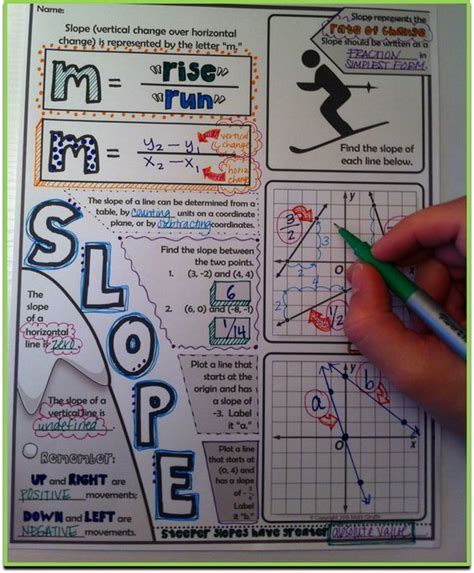 Name:
Slope (vertical change over horizontal
change) is represented by the letter "m."
m = "rise"
"run"
m = y₂ - y₁
x₂ - x₁
vertical
change
horiz
change
Slope represents the
rate of change
Slope should be written as a
FRACTION in
SIMPLEST FORM.
Find the slope of
each line below.
The slope of a line can be determined from a
table, by counting units on a coordinate
plane, or by subtracting coordinates.
SLOPE
Find the slope between
the two points.
1. (3, -2) and (4, 4)
6
2. (6, 0) and (-8, -1)
1/14
3/2
3
2
0
4
2
1/2
The
slope
of a
horizontal
line is zero.
The slope of a
vertical line is
undefined.
Plot a line that
starts at the
origin and has
a slope of
-3. Label
it "a."
Plot a line
that starts at
(0, 4) and
has a slope
of
Label
it "b."
a
b
0
Remember:
UP and RIGHT are
POSITIVE movements;
DOWN and LEFT are
NEGATIVE movements.
steeper slopes have greater absolute value.